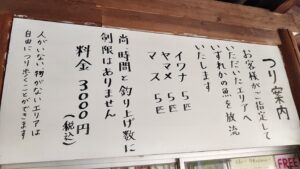 つり案内
お客様がご指定して
いただいたエリアへ
いずれかの魚を放流
いたします
イワナ 5匹
ヤマメ 5匹
マス 5匹
尚、時間と釣り上げ数に
制限はありません
料金 3000円(税込)
人がいない、物がないエリアは
自由につり歩くことができます
FREE